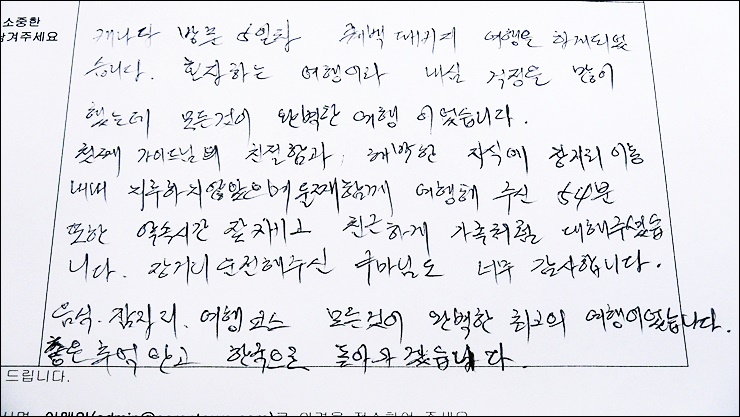 소중한
남겨주세요
캐나다 방문 5일차 록백 패키지 여행을 함께되었
습니다. 혼자하는 여행이라 내심 걱정을 많이
했는데 모든것이 완벽한 여행 이었습니다.
첫째 가이드님의 친절함과, 해박한 지식에 장거리 이동
내내 지루하지 않았으며 둘째 함께 여행해 주신 54분
또한 약속시간 잘 지키고 친근하게 가족처럼 대해주셨습
니다. 장거리 운전해주신 구마님도 너무 감사합니다.
음식. 잠자리. 여행코스 모든것이 완벽한 최고의 여행이었습니다.
좋은 추억 안고 한국으로 돌아가겠습니다.
드립니다.